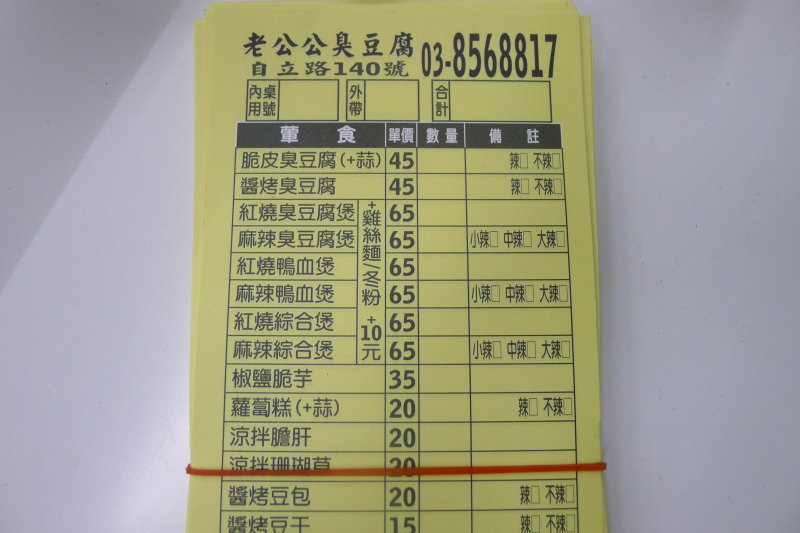 老公公臭豆腐 03-8568817
自立路140號
內用 桌號 外帶 合計
葷食 單價 數量 備註
脆皮臭豆腐(+蒜) 45 辣□ 不辣□
醬烤臭豆腐 45 辣□ 不辣□
紅燒臭豆腐煲 65
麻辣臭豆腐煲 65 小辣□ 中辣□ 大辣□
紅燒鴨血煲 65
麻辣鴨血煲 65 小辣□ 中辣□ 大辣□
紅燒綜合煲 65
麻辣綜合煲 65 小辣□ 中辣□ 大辣□
+雞絲麵/冬粉 +10元
椒鹽脆芋 35
蘿蔔糕(+蒜) 20 辣□ 不辣□
涼拌膽肝 20
涼拌珊瑚草 20
醬烤豆包 20 辣□ 不辣□
醬烤豆干 15 辣□ 不辣□